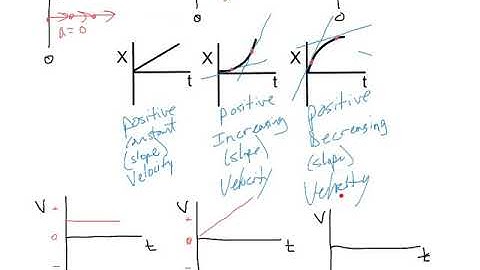 0
0
a = 0
0
X
X
X
t
t
t
positive
constant
(slope)
Velocity
positive
Increasing
(slope)
Velocity
positive
Decreasing
(slope)
Velocity
V
+
0
-
t
V
+
0
-
t
V
t